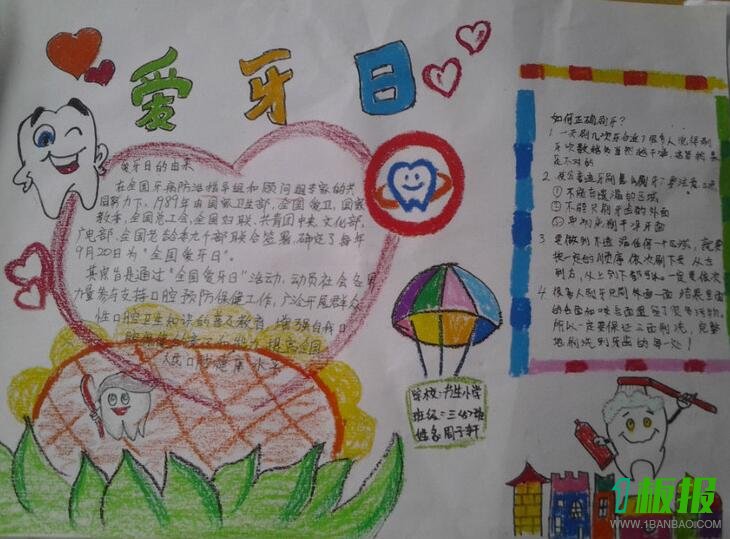 爱牙日
爱牙日的由来
在全国牙病防治指导组和顾问组专家的共
同努力下,1989年由国家卫生部、全国爱卫、国家
教委、全国总工会、全国妇联、共青团中央、文化部、
广电部、全国老龄委九个部联合签署,确定了每年
9月20日为“全国爱牙日”。
其宗旨是通过“全国爱牙日”活动,动员社会各界
力量参与支持口腔预防保健工作,广泛开展群众
性口腔卫生知识的普及教育,增强自我口
提高全国
人民口腔健康水平
学校:书生小学
班级:三(6)班
姓名:周子轩
如何正确刷牙?
1 一天刷几次在合适?很多人觉得刷
牙次数越多当然越干净,这当然是
不对的
①不能有遗漏的区域
②不能只刷牙齿的外面
3 要做到不遗漏任何一个区域,就要
按一定的顺序依次刷下来 从左
到右,从上到下都可以,一定要依次
4 很多人刷牙只刷外面一面,结果里面
所以一定要保证三面刷洗,完整
地刷洗到牙齿的每一处!
1板报
WWW.1BANBAO.COM